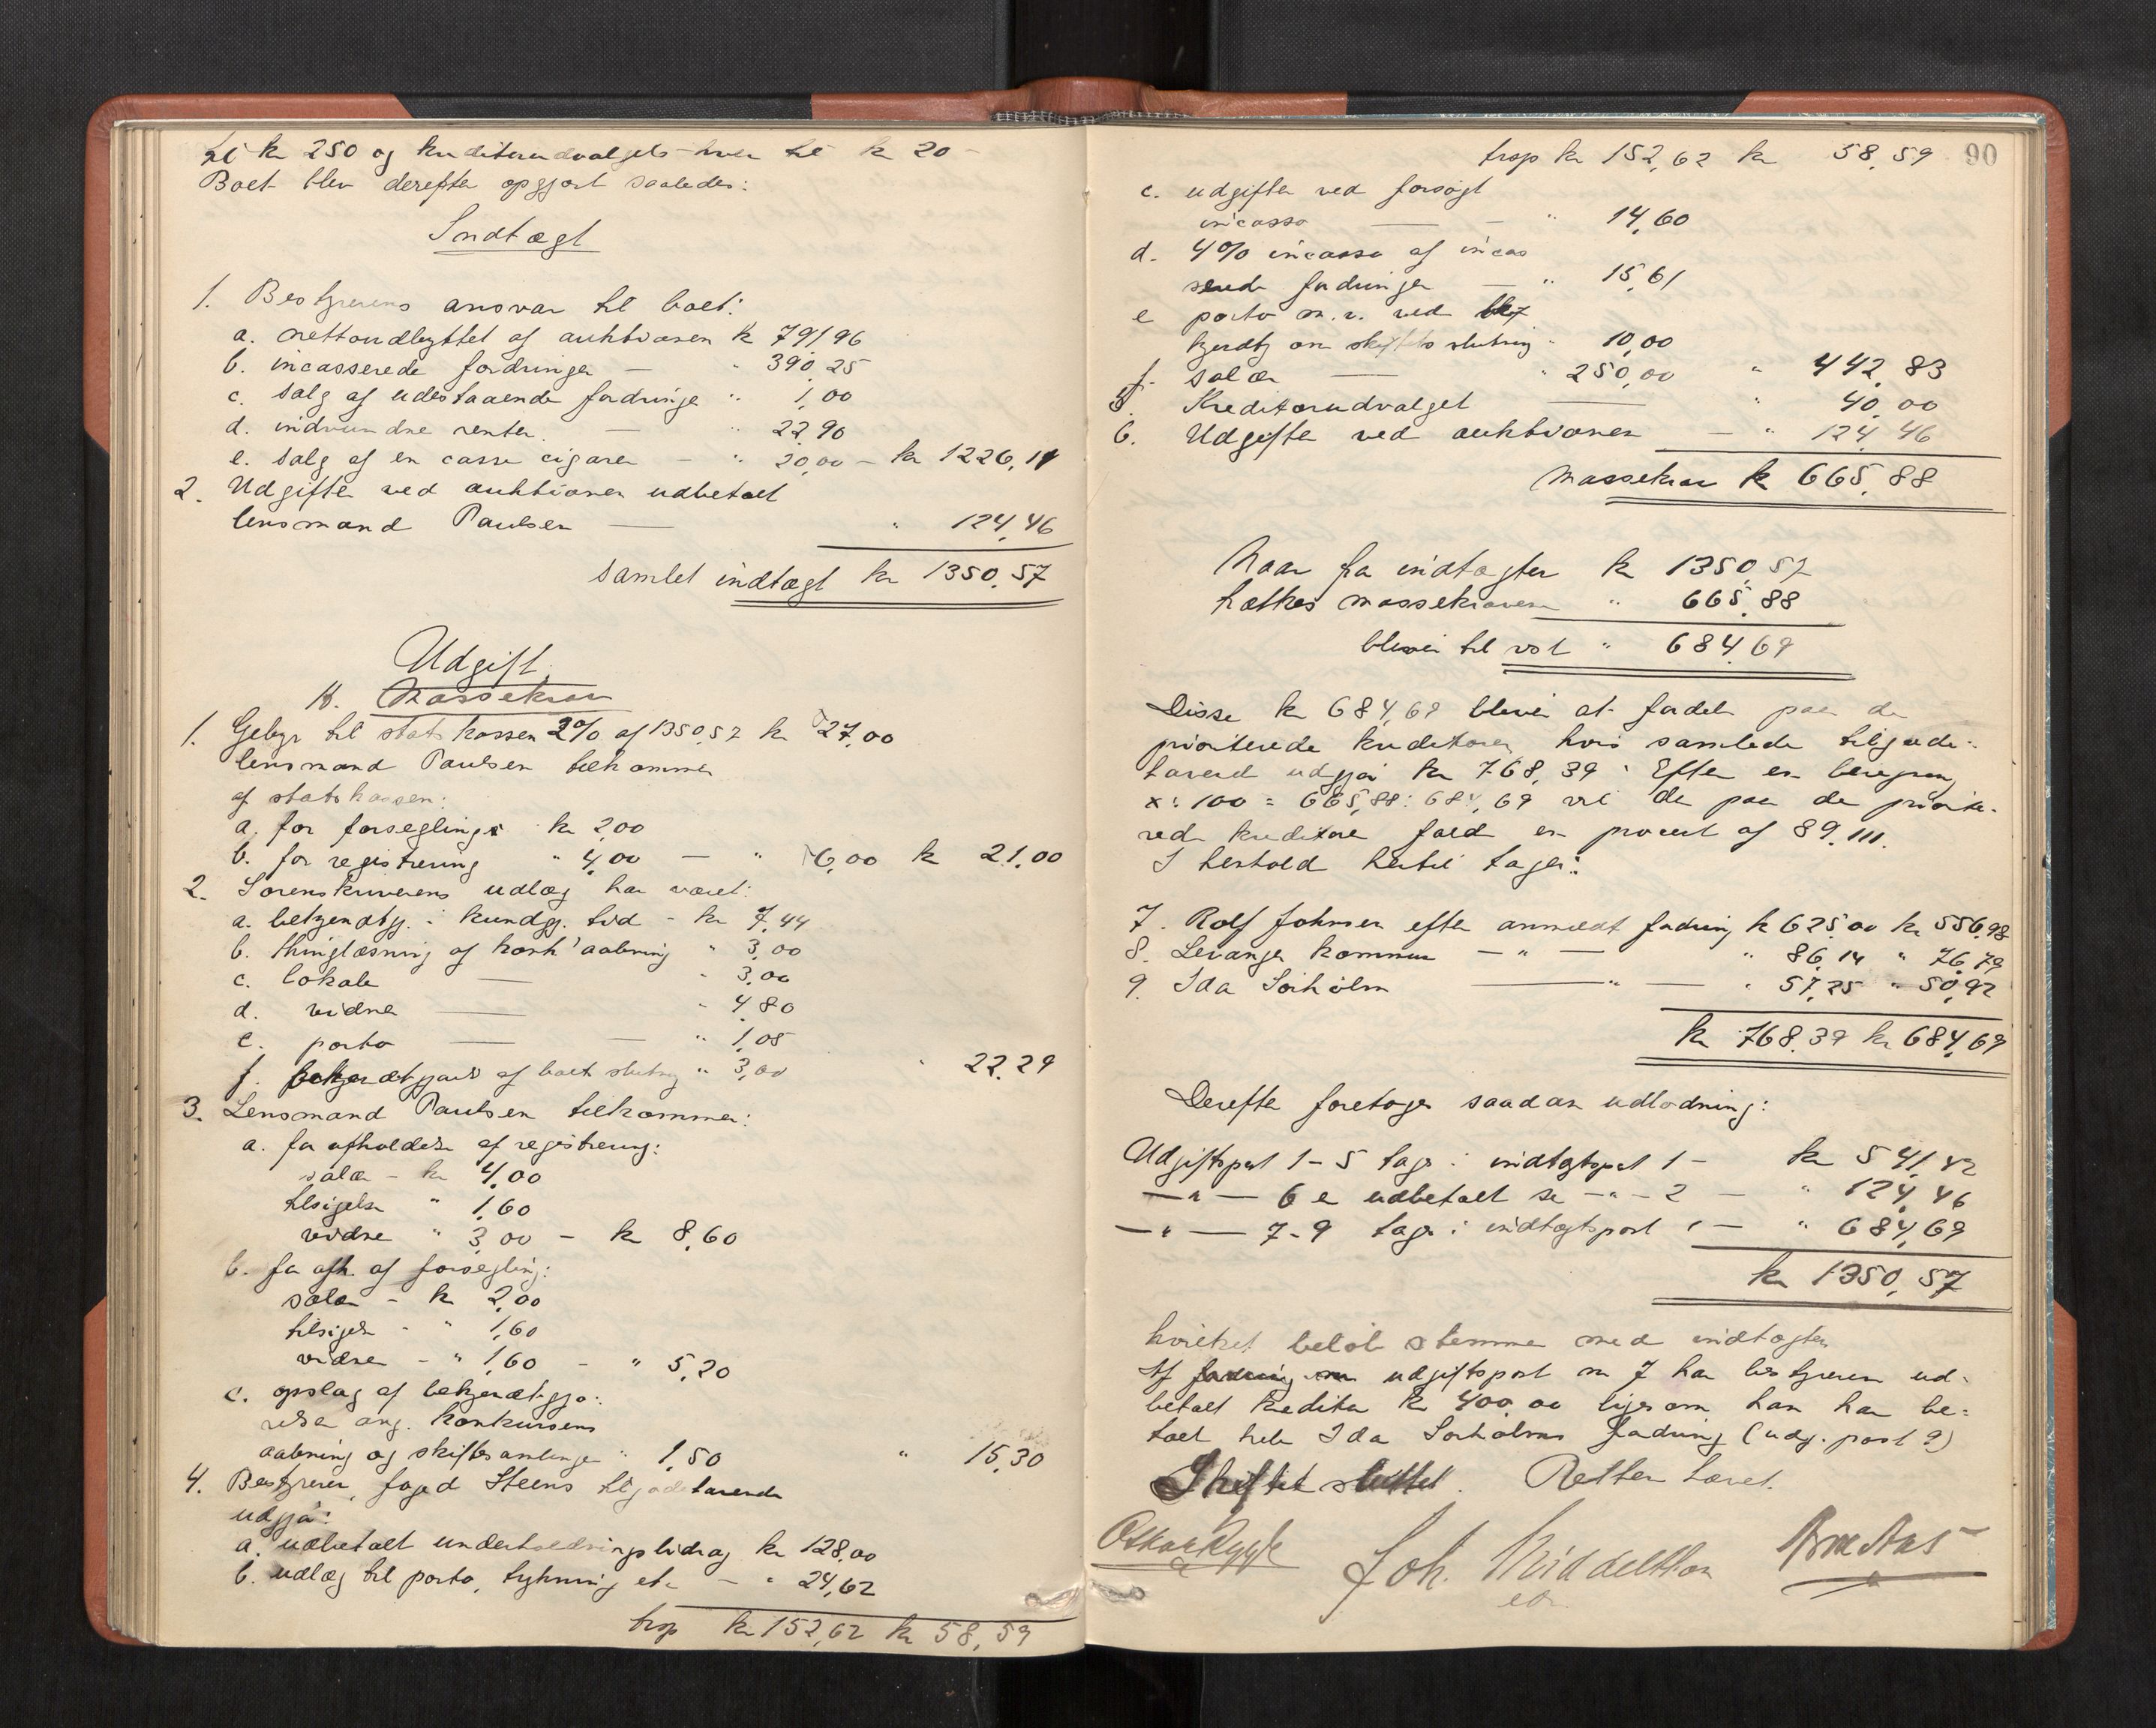 til kr 250 og kreditorudvalgets hver til kr 20 -
Boet blev derefter opgjort saaledes:
Indtægt
1. Bestyrerens ansvar til boet:
a. nettoudbyttet af auktionen kr 791,96
b. incasserede fordringer — " 390,25
c. salg af udestaaende fordringe " 1,00
d. indvundne renter. — " 22,90
e. salg af en casse cigarer — " 20,00 — kr 1226,11
2. Udgifter ved auktionen udbetalt
lensmand Paulsen — " 124,46
samlet indtægt kr 1350,57
Udgift.
A. Massekrav
1. Gebyr til statskassen 2% af 1350,57 kr 27,00
lensmand Paulsen tilkommer
af statskassen:
a. for forseglings kr 2,00
b. for registrering " 4,00 — " 6,00 kr 21.00
2. Sorenskriverens udlæg har været:
a. bekjendtg. i kundgj. tid - kr 7,44
b. thinglæsning af konk' aabning " 3,00
c. lokale — " 3,00
d. vidne — " 4,80
e. porto — — " 1,05
f. bekjendtgjørels af boets slutng " 3,00 " 22.29
3. Lensmand Paulsen tilkommer:
a. for afholdelse af registrering:
salær - kr 4,00
tilsigelse " 1,60
vidne " 3,00 - kr 8,60
b. for afh. af forsegling:
salær - kr 2,00
tilsigelse - " 1,60
vidne - " 1,60 - " 5,20
c. opslag af bekjendtgjø-
relse ang. konkursens
aabning og skiftesamlinge " 1,50 " 15,30
4. Bestyrer, foged Steens tilgodehavende
udgjør:
a. udbetalt underholdningsbidrag kr 128,00
b. udlæg til porto, trykning etc — " 24,62
trsp kr 152,62 kr 58,59
90
trsp kr 152,62 kr 58,59
c. udgifter ved forsøgt
incasso — - " 14,60
d. 4% incasso af incas
serede fordringer — " 15,61
e porto m.v. ved bek
kjendtg om skiftets slutning " 10,00
f. salær — " 250,00 " 442,83
5. Kreditorudvalget — " 40,00
6. Udgifter ved auktionen — " 124,46
Massekrav kr 665,88
Naar fra indtægten kr 1350,57
trækkes massekravene " 665,88
bliver til rest " 684,69
Disse kr 684,69 bliver at fordele paa de
prioriterede kreditorer, hvis samlede tilgode-
havend udgjør kr 768,39. Efter en beregning
x: 100 = 665,88: 684,69 vil der paa de priorite-
rede kreditore fald en procent af 89.111.
I henhold hertil tages:
7. Rolf Johnsen efter anmeldt fordring kr 625,00 kr 556,98
8. Levanger kommune — " — " 86,14 " 76,79
9. Ida Sørholm — " — " 57,25 " 50,92
kr 768,39 kr 684,69
Derefter foretages saadan udlodning:
Udgiftspost 1 - 5 tages i indtægtspost 1 - kr 541,42
— " — 6 er udbetalt se — " - 2 - " 124,46
— " — 7-9 tages i indtægtspost 1 — " 684,69
kr 1350,57
hvilket beløb stemmer med indtægten
Af udgiftspost nr 7 har bestyreren ud-
betalt kreditor kr 400,00 ligesom han har be-
talt hele Ida Sørholms fordring (udg. post 9)
Skiftet sluttet. Retten hævet.
Oskar Rygh Joh. Middelthon Arne Aas